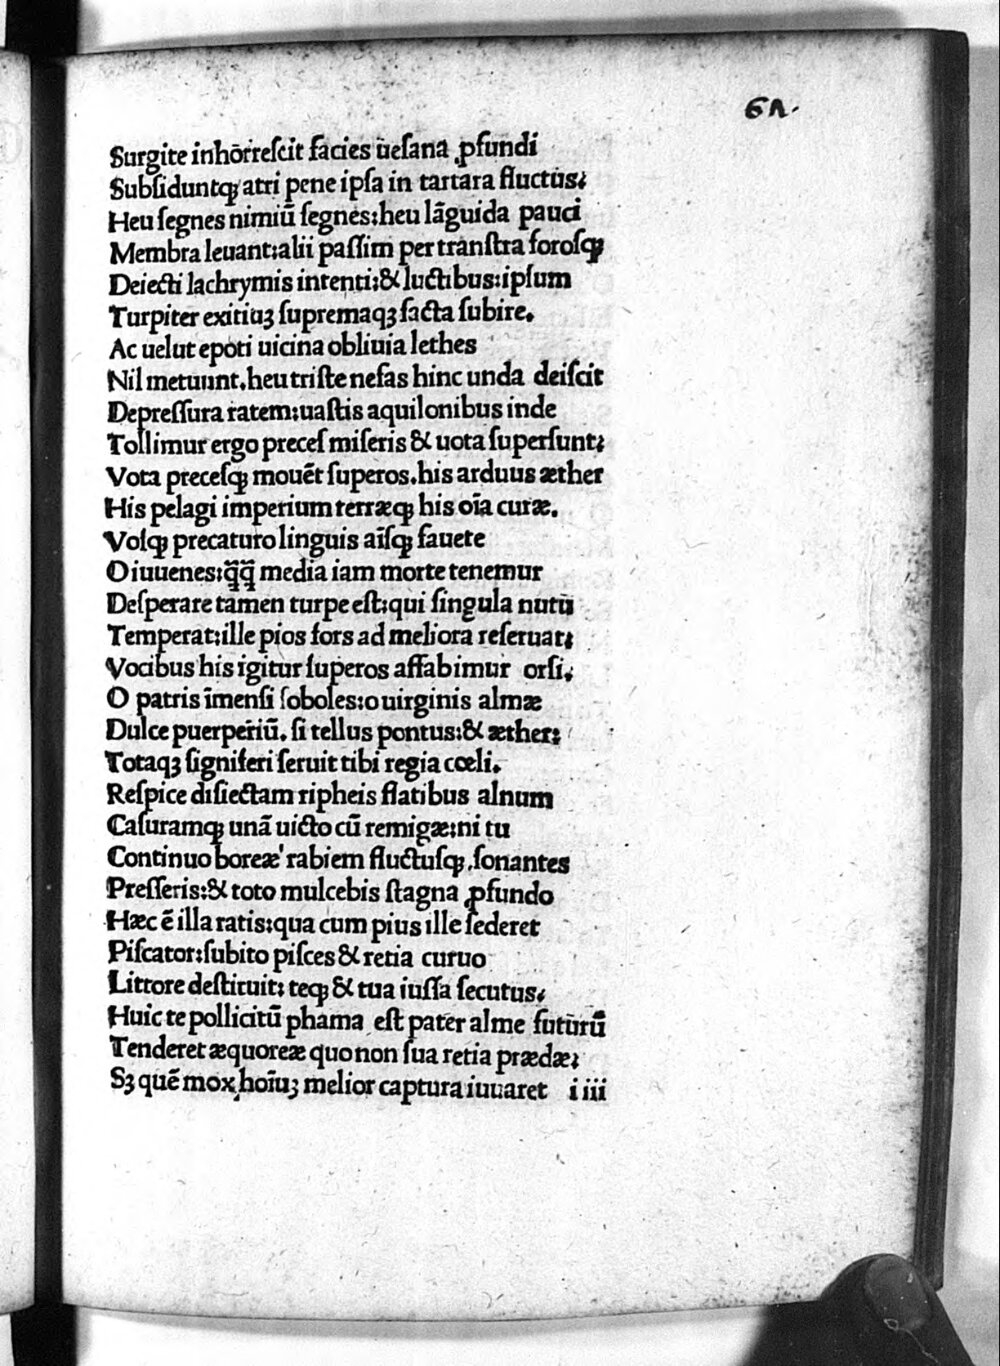 61.
Surgite inhōrreſcit facies ueſana ꝓfundi
Subſiduntqꝫ atri pene ipſa in tartara fluctus;
Heu ſegnes nimiū ſegnes:heu lāguida pauci
Membra leuant:alii paſſim per tranſtra foroſqꝫ
Deiecti lachrymis intenti:& luctibus:ipſum
Turpiter exitiuꝫ ſupremaqꝫ facta ſubire.
Ac uelut epoti uicina obliuia lethes
Nil metuunt.heu triſte nefas hinc unda deiſcit
Depreſſura ratem:uaſtis aquilonibus inde
Tollimur ergo preceſ miſeris & uota ſuperſunt;
Vota preceſqꝫ mouēt ſuperos.his arduus æther
His pelagi imperium terræqꝫ his oīa curæ.
Voſqꝫ precaturo linguis aīſqꝫ fauete
O iuuenes:q̄q̄ media iam morte tenemur
Deſperare tamen turpe eſt:qui ſingula nutu
Temperat:ille pios fors ad meliora reſeruat;
Vocibus his igitur ſuperos affabimur orſi;
O patris īmenſi ſoboles:o uirginis almæ
Dulce puerperiū. ſi tellus pontus:& æther;
Totaqꝫ ſigniferi ſeruit tibi regia cœli.
Reſpice diſiectam ripheis flatibus alnum
Caſuramqꝫ unā uicto cū remigæ:ni tu
Continuo boreæ rabiem fluctuſqꝫ ſonantes
Preſſeris:& toto mulcebis ſtagna ꝓfundo
Hæc ē illa ratis:qua cum pius ille ſederet
Piſcator:ſubito piſces & retia curuo
Littore deſtituit: teqꝫ & tua iuſſa ſecutus;
Huic te pollicitū phama eſt pater alme futurū
Tenderet æquoreæ quo non ſua retia prædæ;
Sꝫ quē mox hoīuꝫ melior captura iuuaret i iii